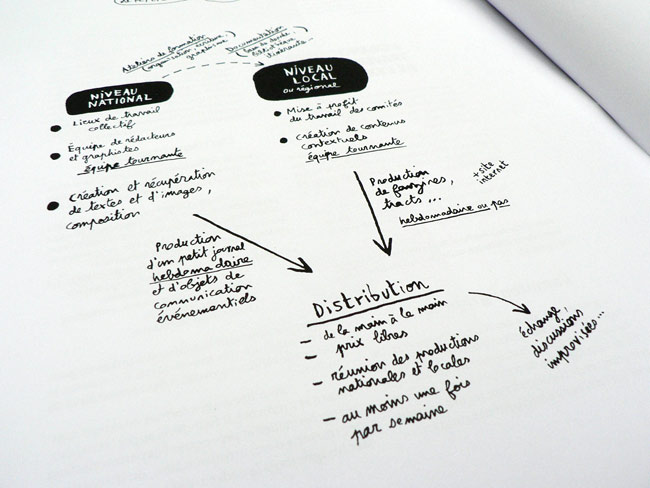 Ateliers de formation
(organisation, écriture
graphisme)
Documentation
NIVEAU
NATIONAL
Lieux de travail
collectif
Équipe de rédacteurs
et graphistes
équipe tournante
Création et récupération
de textes et d'images,
composition
NIVEAU
LOCAL
ou régional
Mise à profit
du travail des comités
Création de contenus
contextuels
équipe tournante
Production
d'un petit journal
hebdomadaire
et d'objets de
communication
événementiels
Production
de fanzines,
tracts...
+ site
internet
hebdomadaire ou pas
Distribution
- de la main à la main
prix libres
- réunion des productions
nationales et locales
- au moins une fois
par semaine
Échange,
discussions
improvisées...